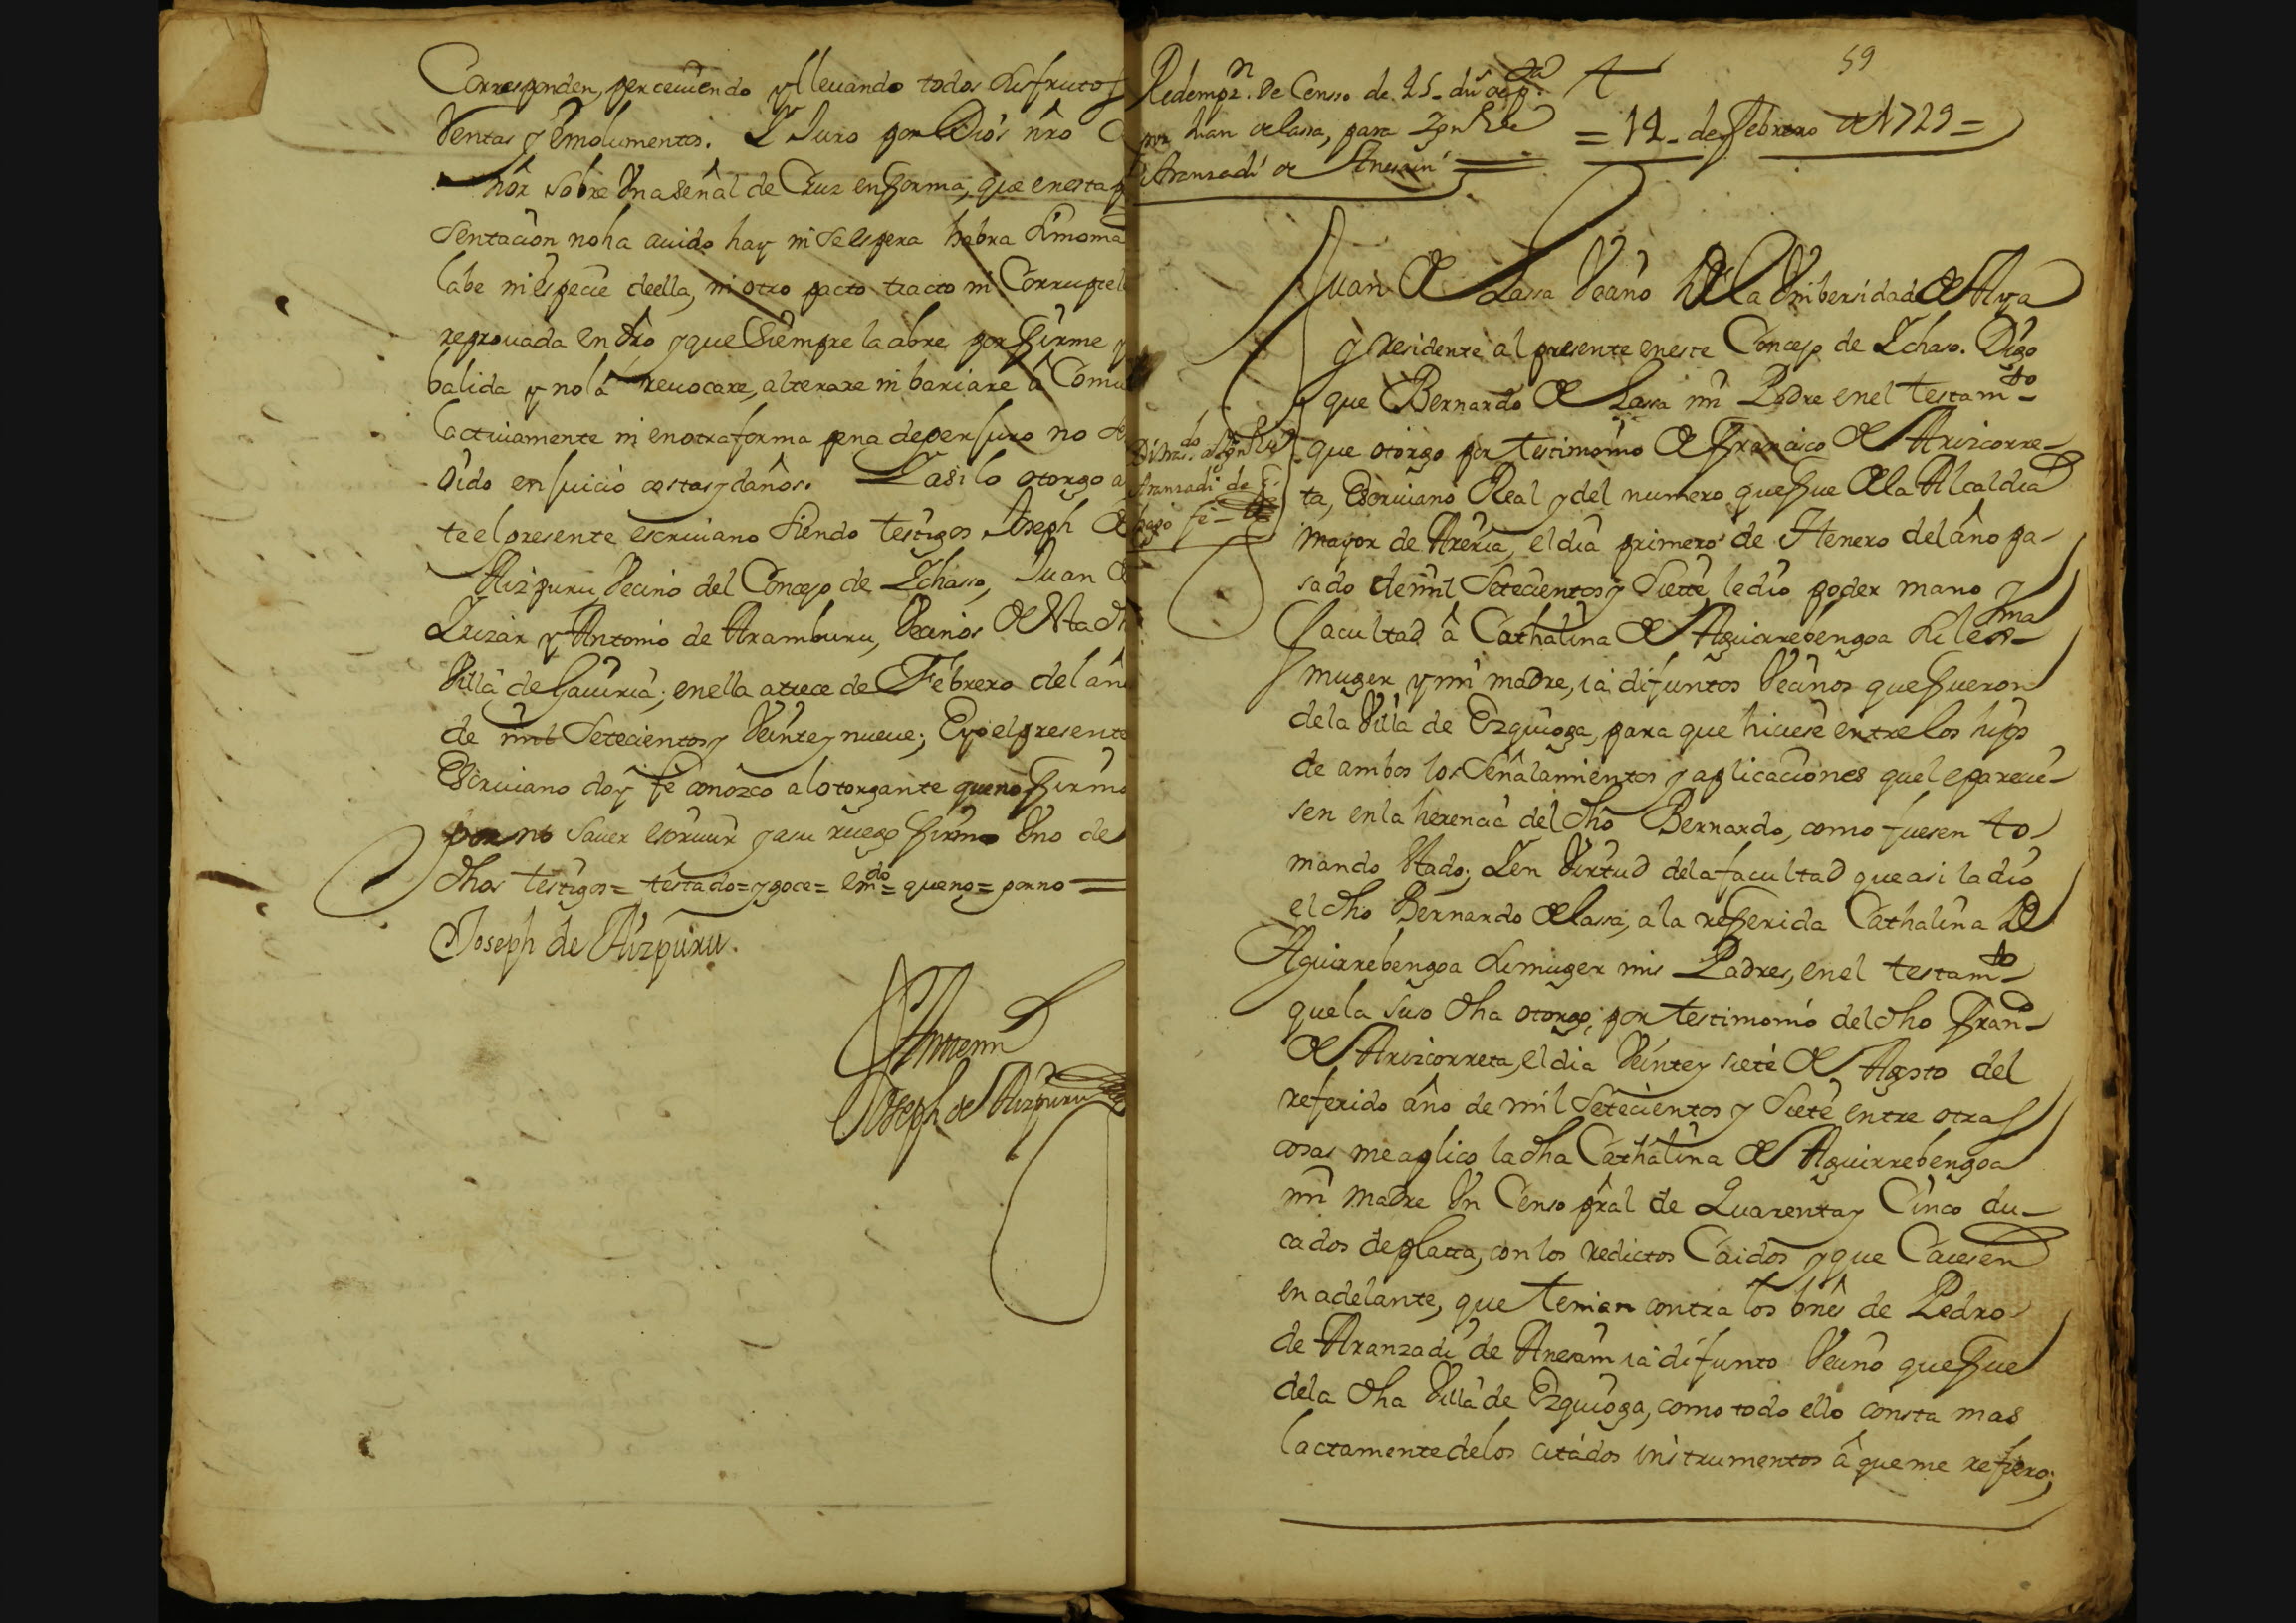 Corresponden, perceuiendo y lleuando todos sus frutos
Rentas y Emolumentos. Y Juro por Dios nr̃o
ñor sobre Vna señal de Cruz en forma, que en esta
sentacion no ha auido hay ni se espera habra simonia
labe ni especie de ella, ni otro pacto tracto ni Corruptel
reprouada en dr̃o y que siempre la abre por firme y
balida y no la reuocare, alterare ni bariare
tacitiuamente ni en otra forma pena de perjuro no
oido en juicio costas y daños. Y asi lo otorgo a
te el presente escriuano siendo testigos Joseph de
Aizpuru, Vecino del Concejo de Ychasso, Juan de
y Antonio de Aramburu, Vecinos de esta dh
Villa de Gauiria; en ella a trece de Febrero del añ
de mil Setecientos y Veinte y nueue; E yo el presente
Escriuano doy fe conozco al otorgante que no firmo
por no sauer escriuir y a su ruego firmo Vno de
dhos testigos = testado = y goce = em.do = que no = por no =
Joseph de Aizpuru.
Ante mi
Joseph de Aizpuru
59
Redempz.n De Censso de 25 du.s de p.ta
por Juan de lassa, para Ygn.
Aranzadi de Anesarri
= 12 de Febrero de 1729 =
Juan de Lassa Vecino de la Vnibersidad de Alza
y residente al presente en este Concejo de Ychaso. Digo
que Bernardo de Lassa mi Padre en el testam.to
que otorgo por testimonio de Francisco de Arizcorre-
ta, Escriuano Real y del numero que fue de la Alcaldia
mayor de Areria, el dia primero de Henero del año pa-
sado de mil Setecientos y Siete, le dio poder mano y
facultad â Cathalina de Aguirrebengoa su lex.ma
muger y mi madre, ia difuntos Vecinos que fueron
de la Villa de Ezquioga, para que hiciese entre los hijos
de ambos los Señalamientos y aplicaciones que le parecie-
sen en la herencia del dho Bernardo, como fuesen to-
mando estado; Y en Virtud de la facultad que asi la dio
el dho Bernardo de lassa, a la referida Cathalina de
Aguirrebengoa su muger mis Padres, en el testam.to
que la suso dha otorgo, por testimonio del dho Fran.co
de Arizcorreta, el dia Veinte y siete de Agosto del
referido año de mil Setecientos y Siete entre otras
cosas me aplico la dha Cathalina de Aguirrebengoa
mi madre Vn Censo pr̃al de Quarenta y Cinco du-
cados de platta, con los redictos Caidos y que Caiesen
en adelante, que tenian contra los bn̂es de Pedro
de Aranzadi de Anesarri ia difunto Vecino que fue
de la dha Villa de Ezquioga, como todo ello consta mas
lactamente de los citados instrumentos â que me refiero;
Aranzadi de
hago fe